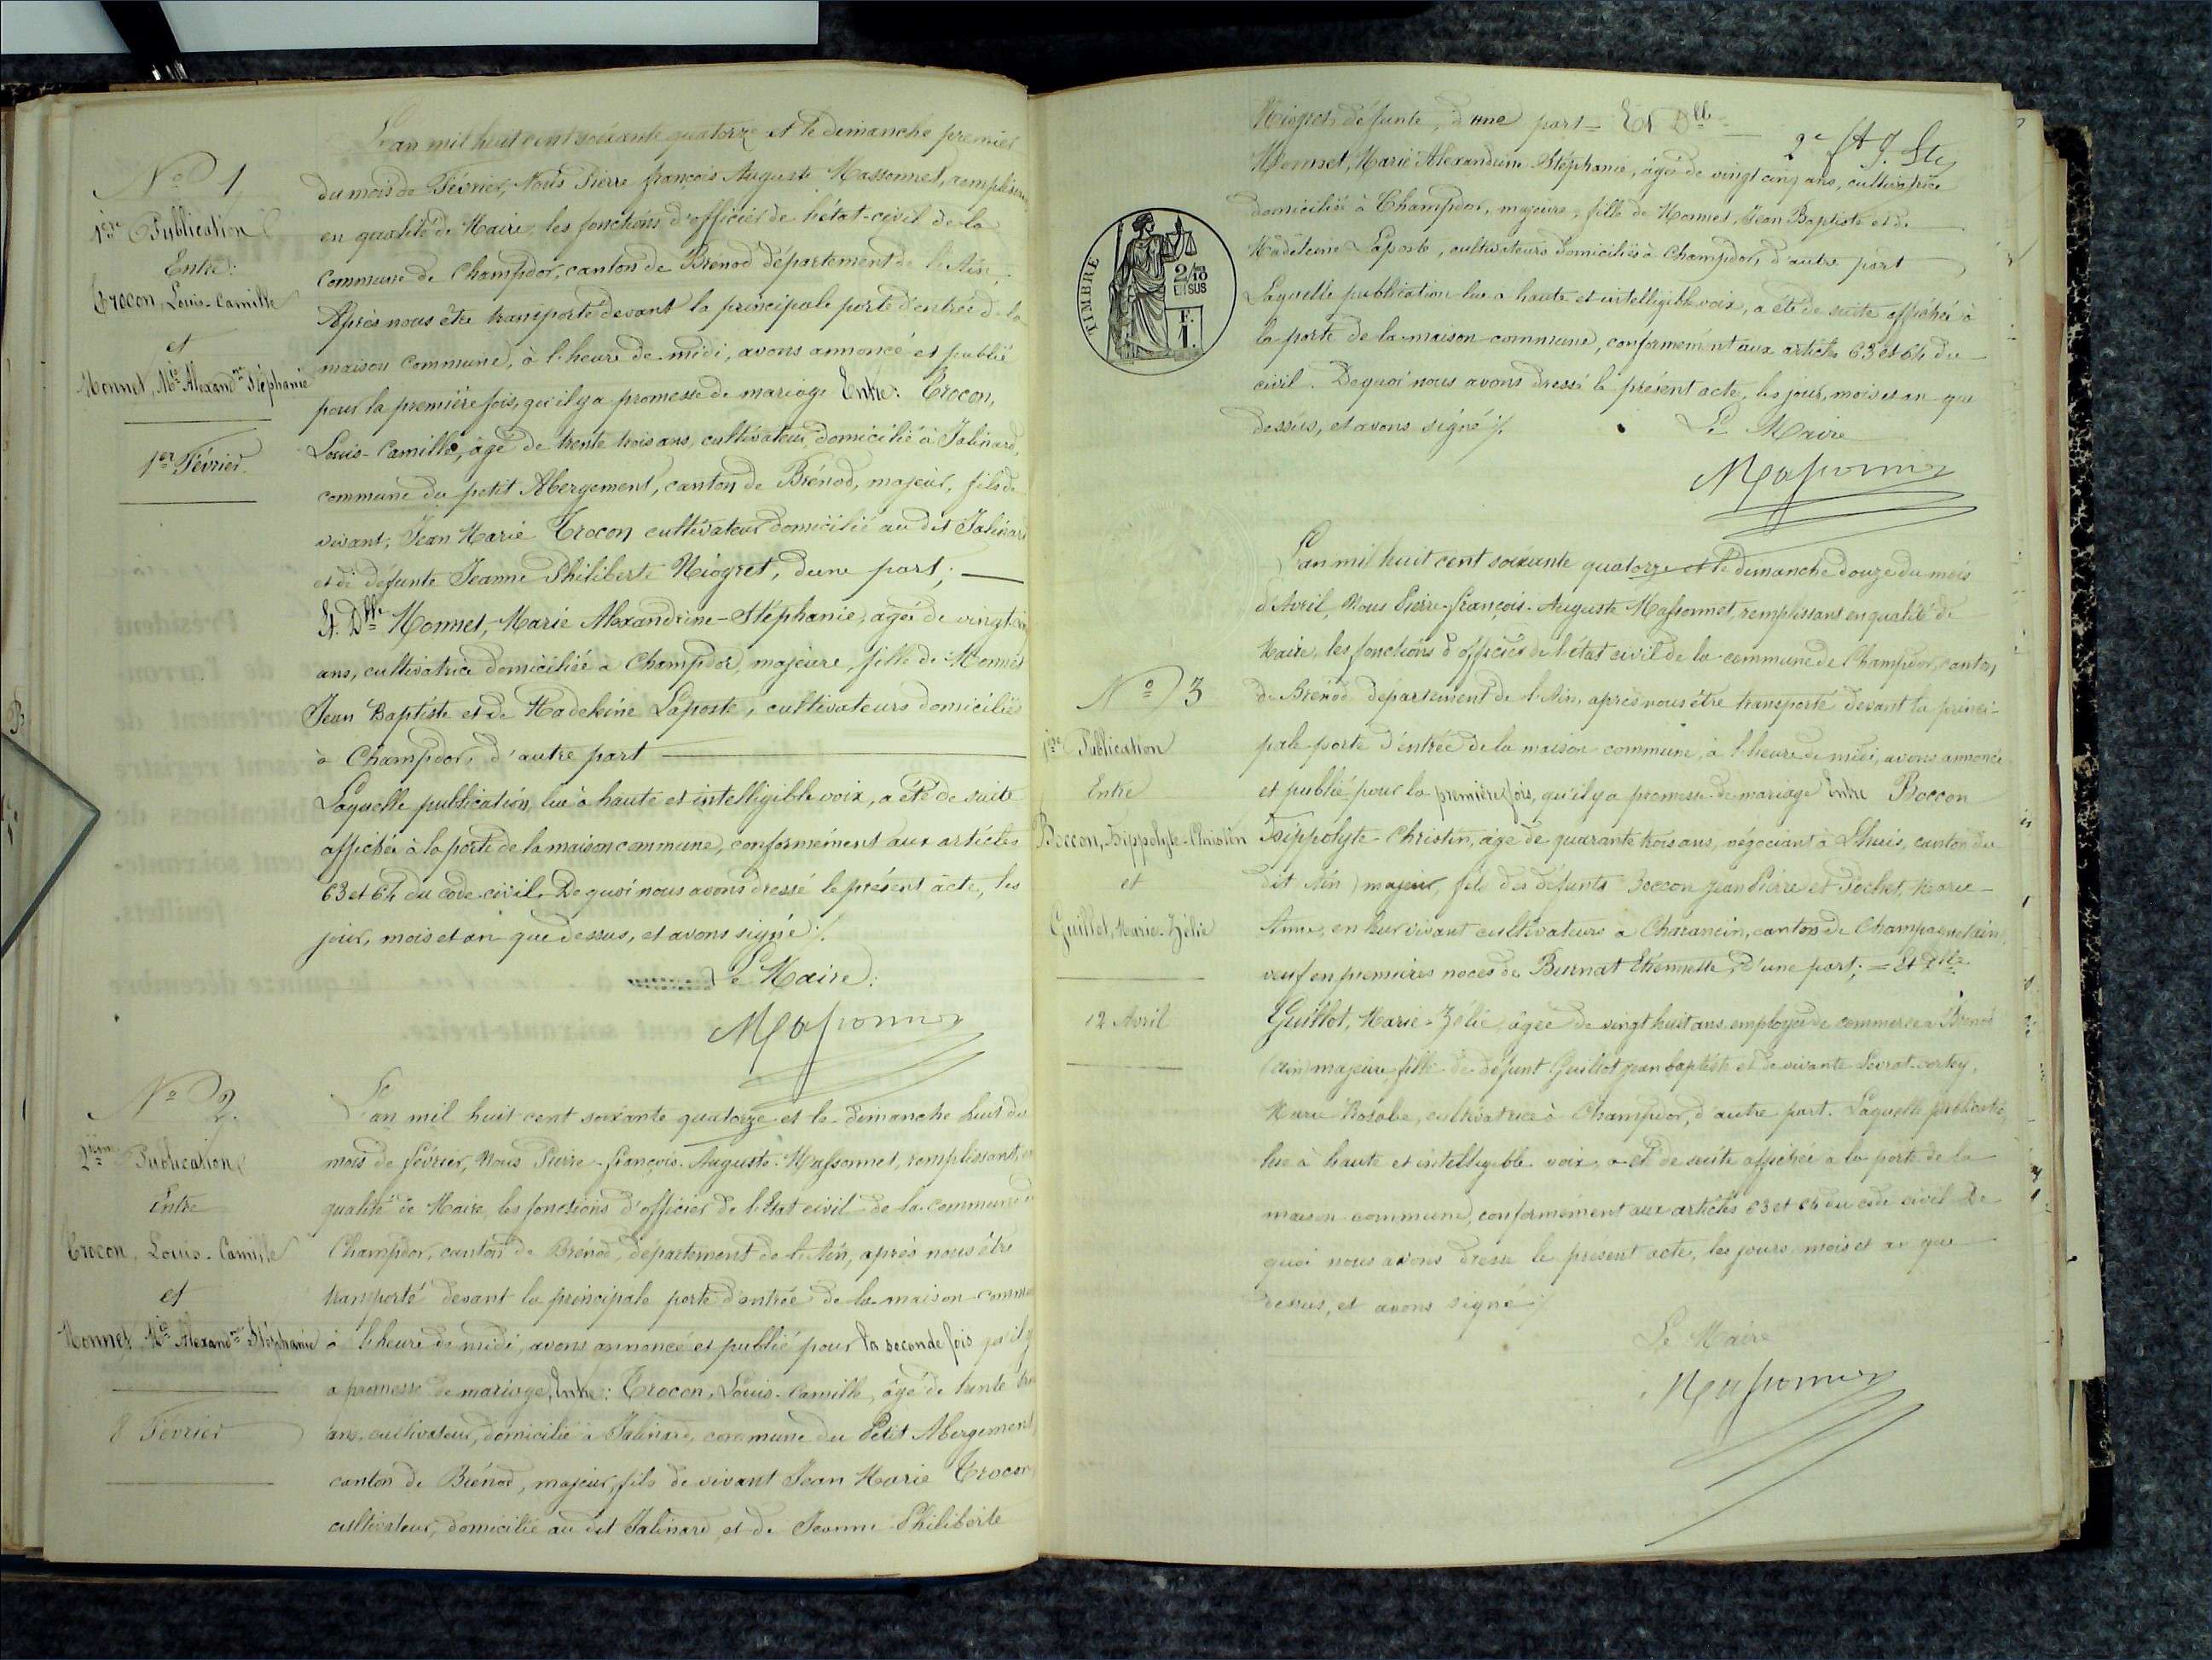 L'an mil huit cent soixante quatorze et le dimanche premier
No 1
du mois de Février, Nous Pierre françois Auguste Massonnet, remplissant
1ère Publication
en qualité de Maire, les fonctions d'officier de l'état-civil de la
Entre:
commune de Champdor, canton de Brénod département de l'Ain,
Crocon, Louis-Camille
Après nous être transporté devant la principale porte d'entrée de la
et
maison commune, à l'heure de midi, avons annoncé et publié
Monnet, Mie Alexandne Stéphanie
pour la première fois, qu'il y a promesse de mariage Entre: Crocon,
1er Février.
Louis-Camille, âgé de trente trois ans, cultivateur domicilié à Jalinard,
commune du petit Abergement, canton de Brénod, majeur, fils de
vivant, Jean Marie Crocon cultivateur domicilié au dit Jalinard
et de défunte Jeanne Philiberte Niogret, d'une part;
Et Dlle Monnet, Marie Alexandrine-Stéphanie, agée de vingt cinq
ans, cultivatrice domiciliée à Champdor, majeure, fille de Monnet
Jean Baptiste et de Madeleine Laposte, cultivateurs domiciliés
à Champdor, d'autre part
Laquelle publication, lue à haute et intelligible voix, a été de suite
affichée à la porte de la maison commune, conformément aux articles
63 et 64 du code civil. De quoi nous avons dressé le présent acte, les
jour, mois et an que dessus, et avons signé /.
Le Maire:
Massonnet
No 2.
L'an mil huit cent soixante quatorze et le dimanche huit du
2ième Publication
mois de février, Nous Pierre-françois-Auguste Massonnet, remplissant en
Entre
qualité de Maire, les fonctions d'officier de l'Etat civil de la commune de
Crocon, Louis-Camille
Champdor, canton de Brénod, département de l'Ain, après nous être
et
transporté devant la principale porte d'entrée de la maison comm
Monnet, Mie Alexandne Stéphanie
à l'heure de midi, avons annoncé et publié pour la seconde fois qu'il y
a promesse de mariage, Entre: Crocon, Louis-Camille, âgé de trente trois
8 Février
ans, cultivateur, domicilié à Jalinard, commune du Petit Abergement,
canton de Brénod, majeur, fils de vivant Jean Marie Crocon
cultivateur, domicilié au dit Jalinard, et de Jeanne Philiberte
Niogret défunte, d'une part = Et Dlle
Monnet, Marie Alexandrine Stéphanie, âgée de vingt cinq ans, cultivatrice
domiciliée à Champdor, majeure, fille de Monnet, Jean Baptiste et de
Madeleine Laposte, cultivateurs domiciliés à Champdor, d'autre part
TIMBRE
2/10 EN SUS
F. 1.
Laquelle publication lue à haute et intelligible voix, a été de suite affichée à
la porte de la maison commune, conformément aux articles 63 et 64 du
civil. De quoi nous avons dressé le présent acte, les jour, mois et an que
dessus, et avons signé /.
Le Maire
Massonnet
L'an mil huit cent soixante quatorze et le dimanche douze du mois
d'Avril, Nous Pierre-françois-Auguste Massonnet, remplissant en qualité de
Maire, les fonctions d'officier de l'état civil de la commune de Champdor, canton
No 3
de Brénod département de l'Ain, après nous être transporté devant la princi-
1ère Publication
pale porte d'entrée de la maison commune, à l'heure de midi, avons annoncé
Entre
et publié pour la première fois, qu'il y a promesse de mariage Entre Boccon
Boccon, Hippolyte-Christin
Hippolyte-Christin, âgé de quarante trois ans, négociant à Lhuis, canton du
et
dit Ain) majeur, fils des défunts Boccon Jean Pierre et Pochet, Marie-
Guillot, Marie-Zélie
Anne, en leur vivant cultivateurs à Charancin, canton de Champagne (ain),
veuf en premières noces de Burnat Etiennette, d'une part; = Et Dlle
12 Avril
Guillot, Marie-Zélie, âgée de vingt huit ans, employée de commerce à Brénod
(ain) majeure, fille de défunt Guillot jean baptiste et de vivante Levrat-
Marie Rosalie, cultivatrice à Champdor, d'autre part. Laquelle publication,
lue à haute et intelligible voix, a été de suite affichée à la porte de la
maison commune, conformément aux articles 63 et 64 du code civil. De
quoi nous avons dressé le présent acte, les jours, mois et an que
dessus, et avons signé /.
Le Maire
Massonnet